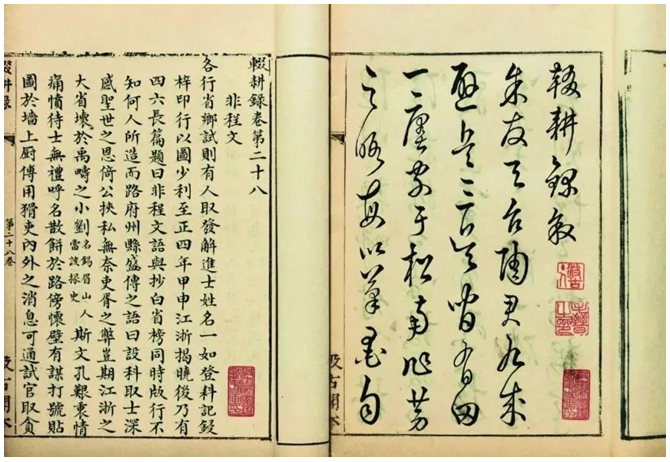 輟耕錄敘
余友天台陶君九成
避兵三吳間有田
一廛家于松南作勞
之暇每以筆墨自
輟耕錄卷第二十八
非程文
各行省鄉試則有人取發解進士姓名一如登科記鋟
梓印行以圖少利至正四年甲申江浙揭曉後乃有
四六長篇題曰非程文語與抄白省榜同時版行不
知何人所造而路府州縣盛傳之語曰設科取士深
感聖世之恩倚公挾私無奈吏胥之弊豈期江浙之
大省壞於禹疇之小劉名錫眉山人當該掾史斯文孔艱衷情
痛憤待士無禮呼名散餅於路傍懷璧有謀打號貼
圖於墻上厨傳用猾吏內外之消息可通試官取貪
輟耕錄 第二十八卷 汲古閣本